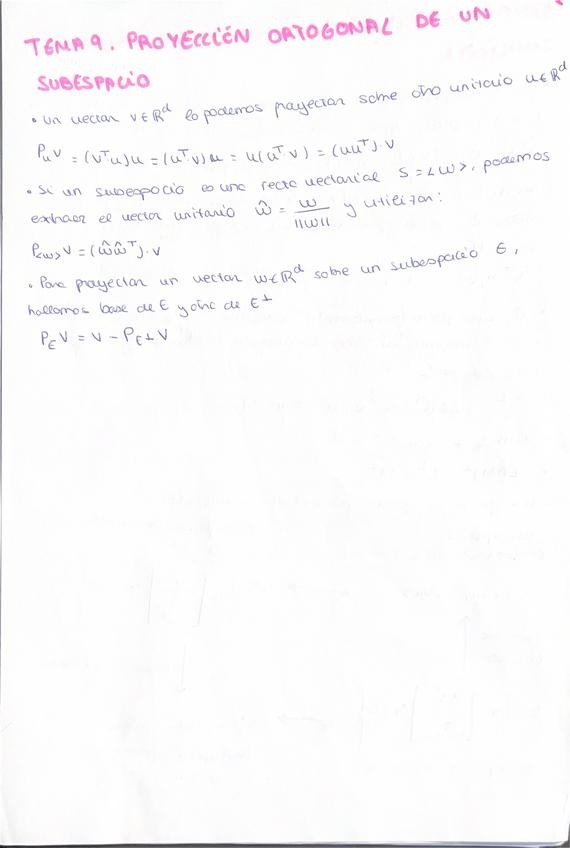 TEMA 9. PROYECCIÓN ORTOGONAL DE UN
SUBESPACIO
• Un vector v ∈ ℝᵈ lo podemos proyectar sobre otro unitario u ∈ ℝᵈ
Pᵤv = (vᵀu)u = (uᵀ·v)u = u(uᵀv) = (uuᵀ)·v
• Si un subespacio es una recta vectorial S = <w>, podemos
extraer el vector unitario ŵ = w/||w|| y utilizar:
P<w>v = (ŵŵᵀ)·v
• Para proyectar un vector w ∈ ℝᵈ sobre un subespacio E,
hallamos base de E y otra de E⊥
P_E v = v - P_E⊥ v